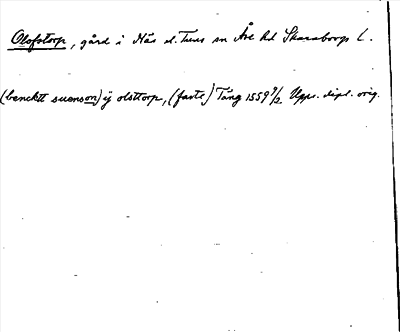 Olofstorp, gård i Näs d. Tuns sn Åse hd Skaraborgs l.
(benchtt suenson) ÿ olsttorp, (faste) Tång 1559 9/2 Upps. dipl. orig.